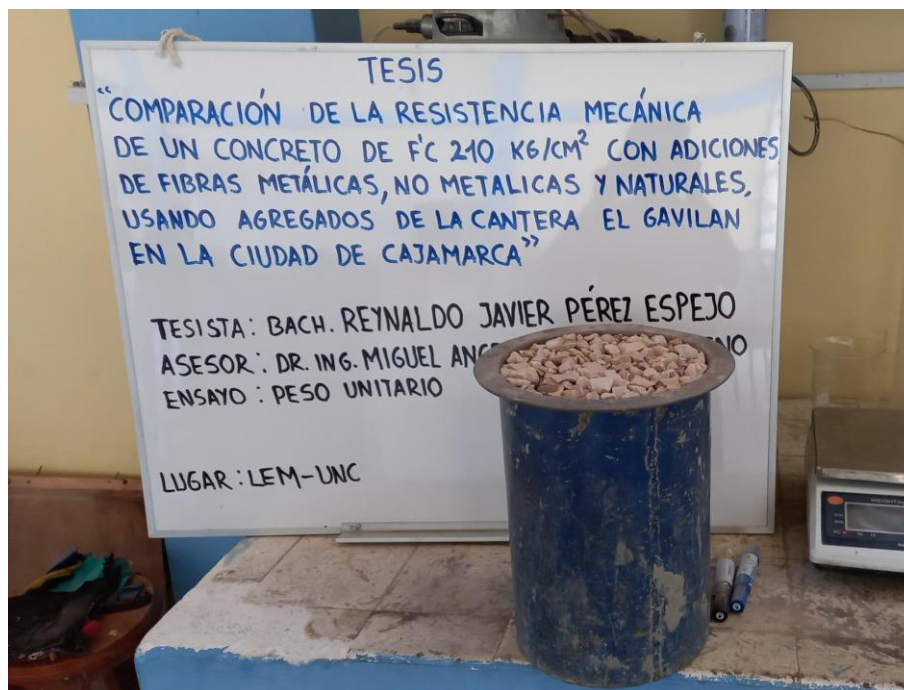 TESIS
"COMPARACIÓN DE LA RESISTENCIA MECÁNICA
DE UN CONCRETO DE F'C 210 KG/CM² CON ADICIONES
DE FIBRAS METÁLICAS, NO METALICAS Y NATURALES,
USANDO AGREGADOS DE LA CANTERA EL GAVILAN
EN LA CIUDAD DE CAJAMARCA"
TESISTA: BACH. REYNALDO JAVIER PÉREZ ESPEJO
ASESOR: DR. ING. MIGUEL
ENSAYO: PESO UNITARIO
LUGAR: LEM-UNC